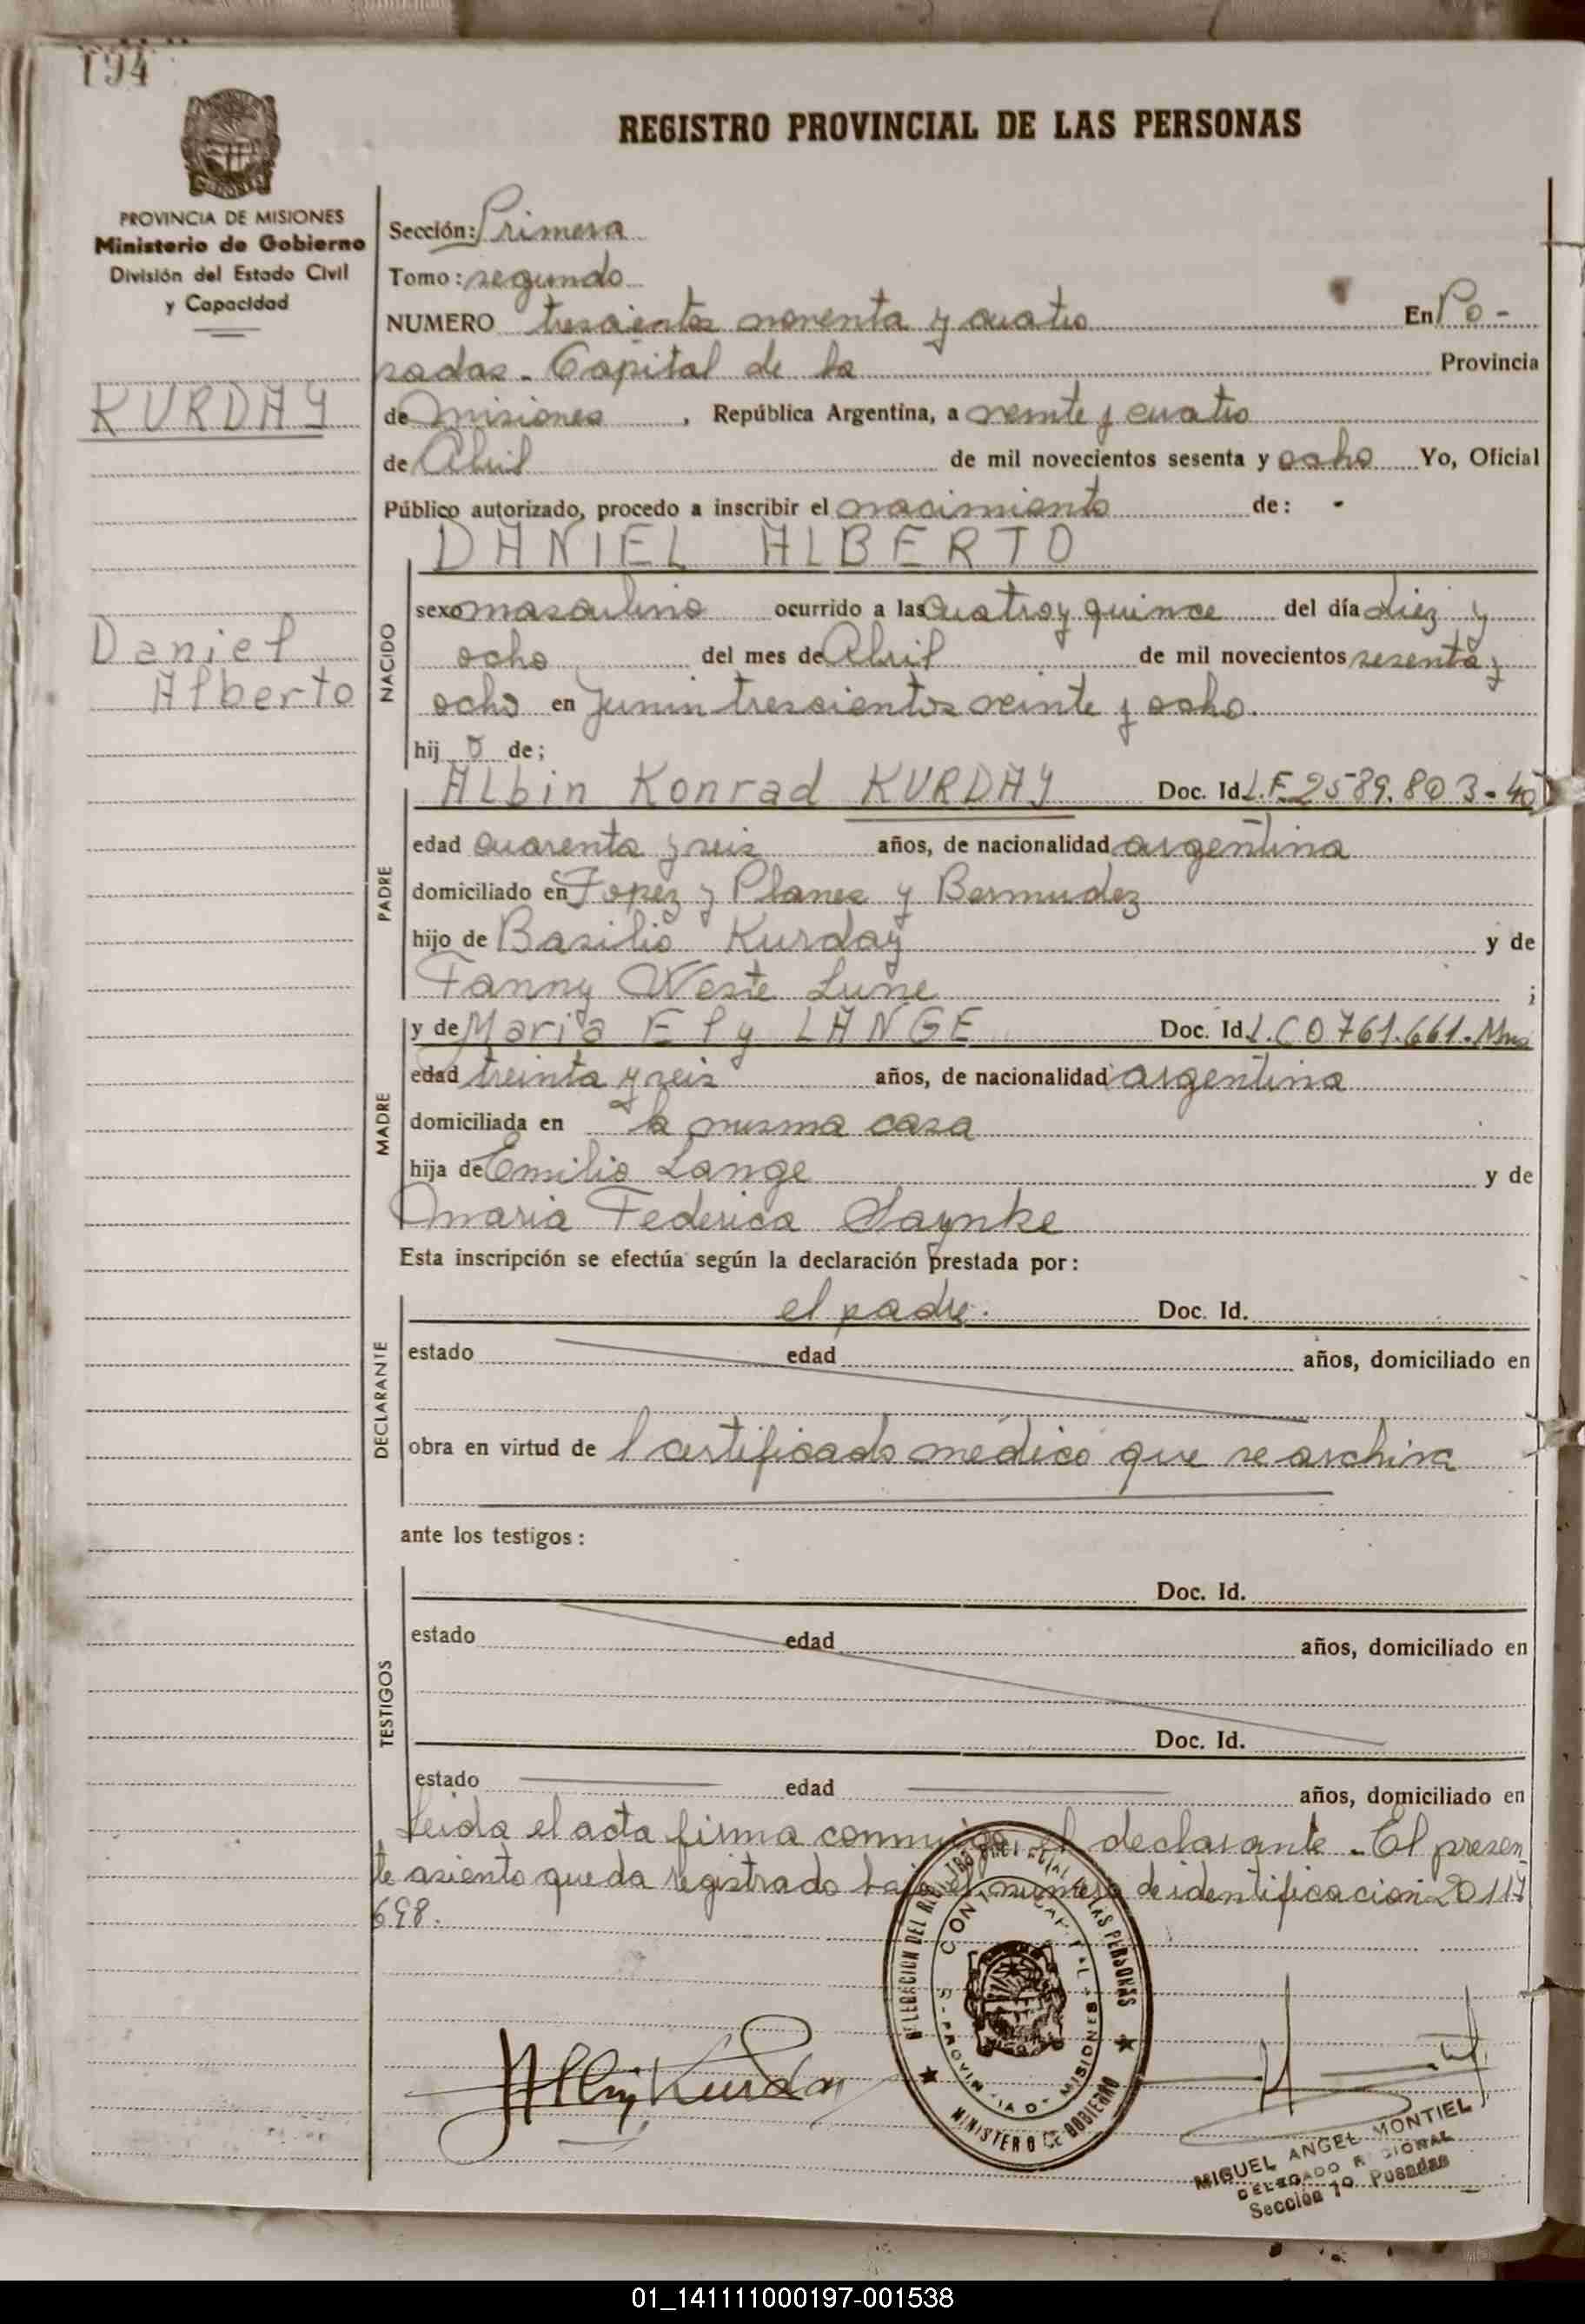 194
REGISTRO PROVINCIAL DE LAS PERSONAS
PROVINCIA DE MISIONES
Ministerio de Gobierno
División del Estado Civil
y Capacidad
KURDAY
Daniel
Alberto
Sección: Primera
Tomo: segundo
NUMERO trescientos noventa y cuatro En Po-
sadas - Capital de la Provincia
de Misiones, República Argentina, a veinte y cuatro
de Abril de mil novecientos sesenta y ocho Yo, Oficial
Público autorizado, procedo a inscribir el nacimiento de: -
DANIEL ALBERTO
NACIDO
sexo masculino ocurrido a las cuatro y quince del día diez y
ocho del mes de Abril de mil novecientos sesenta y
ocho en Junin trescientos veinte y ocho.
hij o de;
PADRE
Albin Konrad KURDAY Doc. Id. L.E 2589.803-40
edad cuarenta y seis años, de nacionalidad argentina
domiciliado en Lopez y Planes y Bermudez
hijo de Basilio Kurday y de
Fanny Neste Lune ;
MADRE
y de Maria Ely LANGE Doc. Id. L.C 0761.661. Mns
edad treinta y seis años, de nacionalidad argentina
domiciliada en la misma casa
hija de Emilio Lange y de
Maria Federica Jaynke
Esta inscripción se efectúa según la declaración prestada por:
DECLARANTE
el padre. Doc. Id.
estado edad años, domiciliado en
obra en virtud de l certificado médico que se archiva
ante los testigos:
TESTIGOS
Doc. Id.
estado edad años, domiciliado en
Doc. Id.
estado edad años, domiciliado en
Leida el acta firma conmigo, el declarante - El presen
te asiento queda registrado bajo el número de identificación 20117
698.
Albin Kurday
DELEGACION DEL REGISTRO PROVINCIAL DE LAS PERSONAS
CAPITAL - MISIONES
PROVINCIA DE MISIONES
MINISTERIO DE GOBIERNO
MIGUEL ANGEL MONTIEL
DELEGADO REGIONAL
Sección 1º Posadas
01_141111000197-001538